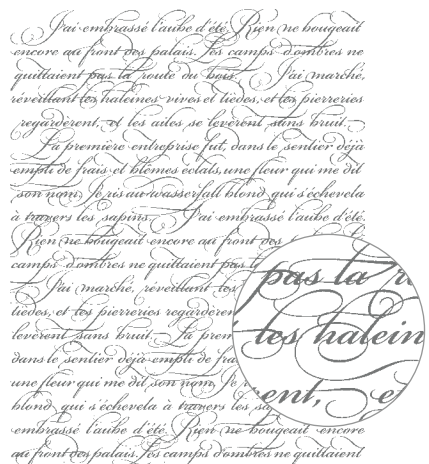 J'ai embrassé l'aube d'été. Rien ne bougeait
encore au front des palais. Les camps d'ombres ne
quittaient pas la route du bois. J'ai marché,
réveillant les haleines vives et tièdes, et les pierreries
regardèrent, et les ailes se levèrent sans bruit.
La première entreprise fut, dans le sentier déjà
empli de frais et blêmes éclats, une fleur qui me dit
son nom. Je ris au wasserfall blond qui s'échevela
à travers les sapins. J'ai embrassé l'aube d'été.
Rien ne bougeait encore au front des
camps d'ombres ne quittaient pas l
J'ai marché, réveillant les
tièdes, et les pierreries regardèren
levèrent sans bruit. La prem
dans le sentier déjà empli de fra
une fleur qui me dit son nom. Je r
blond qui s'échevela à travers les sa
embrassé l'aube d'été. Rien ne bougeait encore
au front des palais. Les camps d'ombres ne quittaient
pas la r
les halein
rent, et